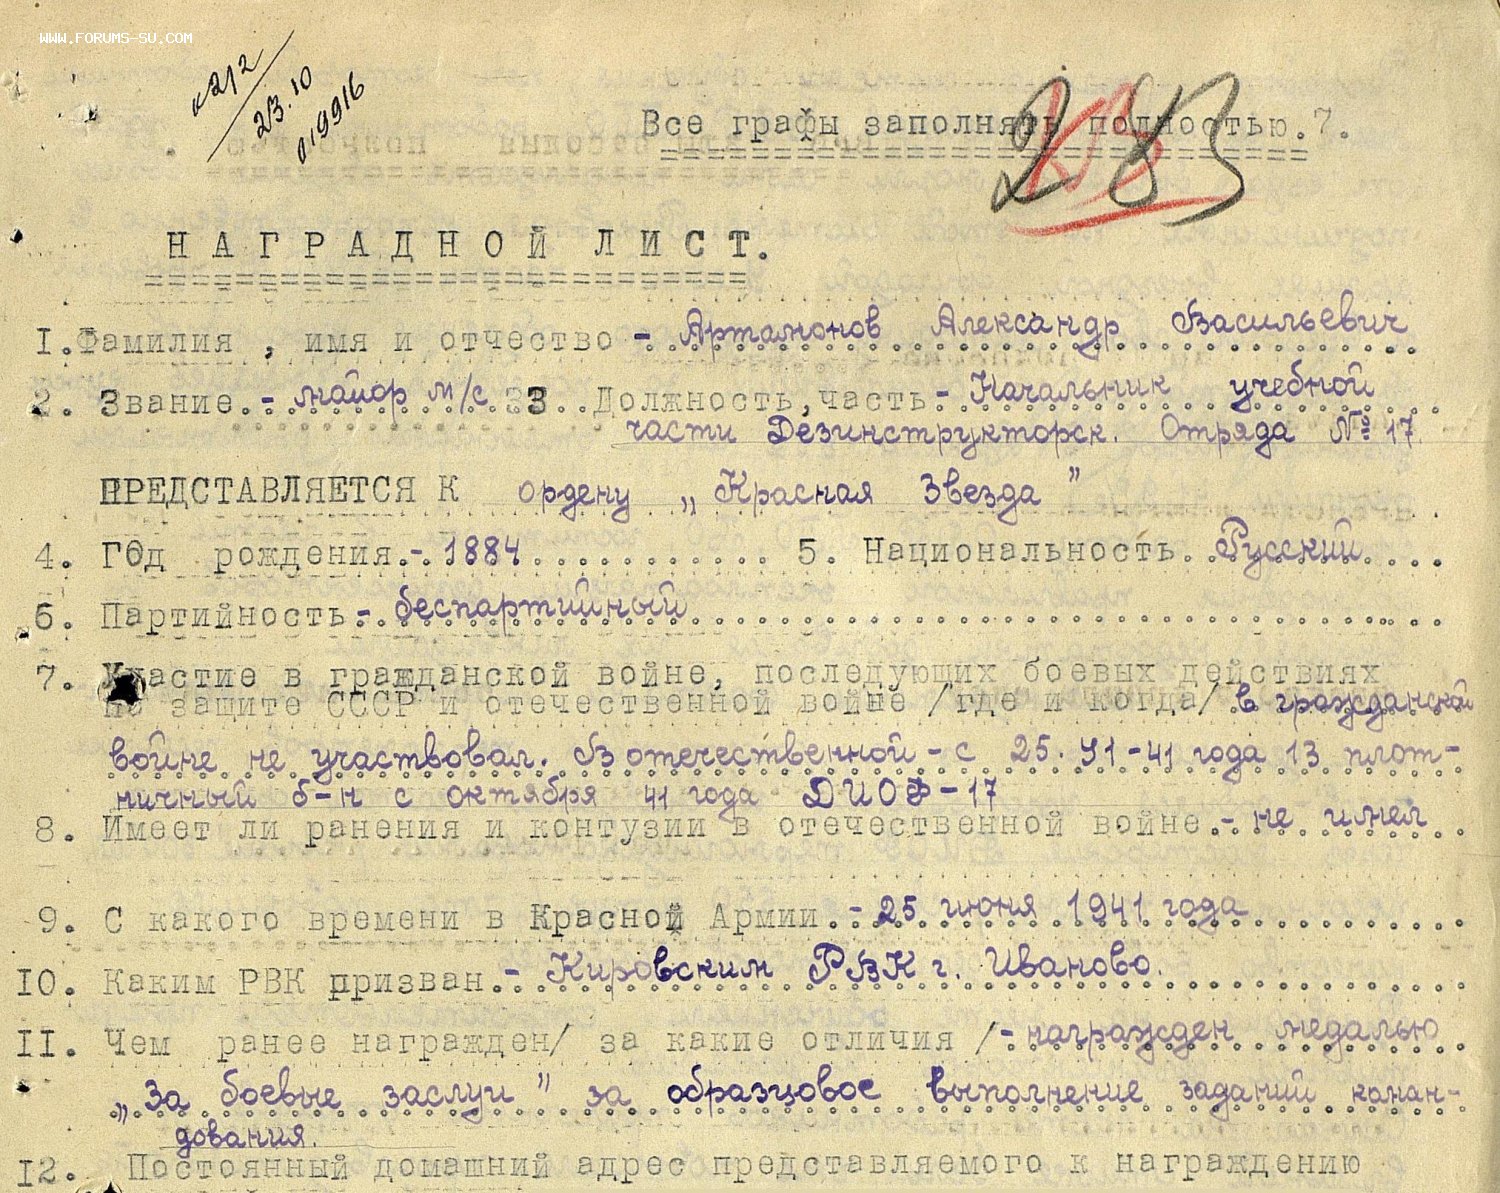 WWW.FORUMS-SU.COM
к212
23.10
019916
Все графы заполнять полностью.7.
283
НАГРАДНОЙ ЛИСТ.
1.Фамилия, имя и отчество - Артамонов Александр Васильевич
2. Звание.- майор м/с 3. Должность,часть - Начальник учебной
части Дезинструкторск. Отряда № 17
ПРЕДСТАВЛЯЕТСЯ К ордену „Красная Звезда"
4. Год рождения.- 1884 5. Национальность. Русский
6. Партийность - беспартийный
7. Участие в гражданской войне, последующих боевых действиях
по защите СССР и отечественной войне /где и когда/ в гражданской
войне не участвовал. В отечественной - с 25.VI-41 года 13 плот-
ничный б-н с октября 41 года ДИОФ-17
8. Имеет ли ранения и контузии в отечественной войне.- не имел
9. С какого времени в Красной Армии.- 25 июня 1941 года
10. Каким РВК призван.- Кировским РВК г. Иваново.
11. Чем ранее награжден/ за какие отличия /- награжден медалью
„За боевые заслуги" за образцовое выполнение заданий коман-
дования.
12. Постоянный домашний адрес представляемого к награждению